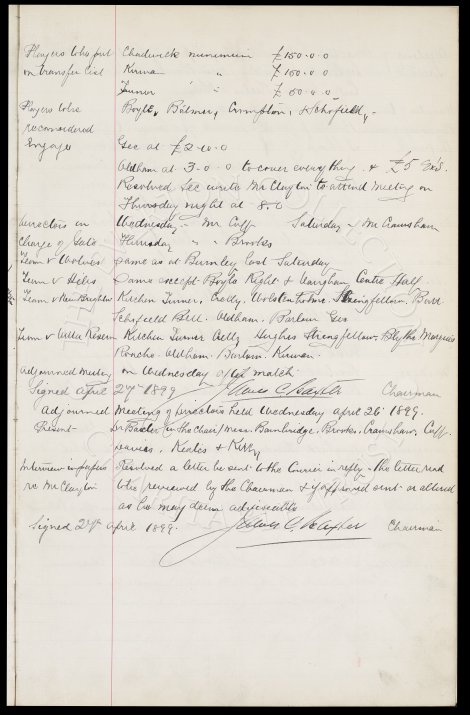 Players to be put Chadwick minimum £150.0.0
on transfer list Kirwan " £100.0.0
Turner " £50.0.0
Players to be Boyle, Balmer, Crompton, & Schofield,
reconsidered
Engage Gee at £2.10.0
Oldham at 3.0.0 to cover everything & £5
Resolved Sec write Mr Clayton to attend meeting on
Thursday night at 8.0
Directors in Wednesday - Mr Cuff Saturday - Mr Crawshaw
Charge of Gate Thursday " " Brooks
Team v Wolves same as at Burnley last Saturday
Team v Hibs same except Boyle Right & Vaughan Centre Half
Team v New Brighton Kitchen Turner, Kelly, Wolstenholme, Stringfellow, Barr
Schofield Bell. Oldham. Barlow Gee
Team v White Kitchen Turner Kelly Hughes Stringfellow, Blythe Marquis
Roncho. Oldham. Barlow. Kirwan.
Adjourned meeting on Wednesday after match
Signed April 27th 1899 James C. Baxter Chairman
Adjourned Meeting of Directors held Wednesday April 26th 1899.
Present Dr Baxter (in the chair) Messrs Bainbridge, Brooks, Crawshaw, Cuff
Davies, Keates & Kirby
Interview in papers Resolved a letter be sent to the Courier in reply. The letter read
re Mr Clayton to be reviewed by the Chairman & if approved sent or altered
as he may deem advisable
Signed 27th April 1899. James C. Baxter Chairman